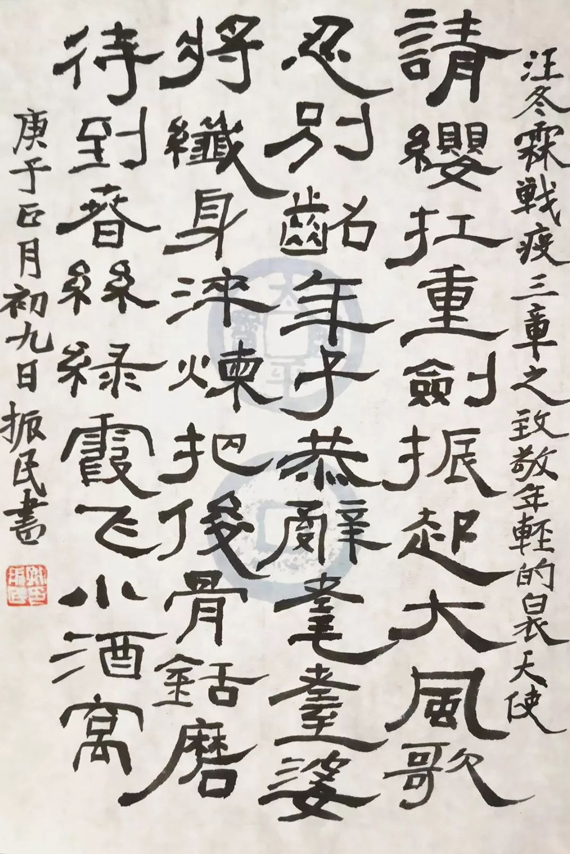 汪冬霖戦疫三章之致敬年輕的白衣天使
請纓扛重劍振起大風歌
忍別齠年子恭辭耄耋婆
將纖身淬煉把俊骨銛磨
待到春絲綠霞飞小酒窩
庚子正月初九日振民書